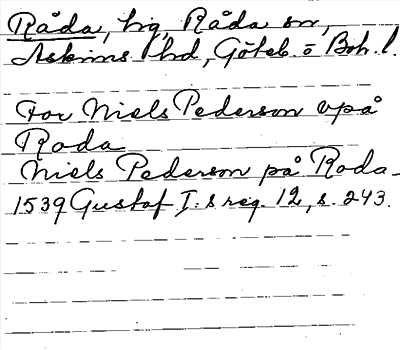 Råda, hg, Råda sn,
Askims hd, Göteb. o Boh. l.
For Niels Pederson vpå
Roda
Niels Pederson på Roda
1539 Gustaf I:s reg. 12, s. 243.